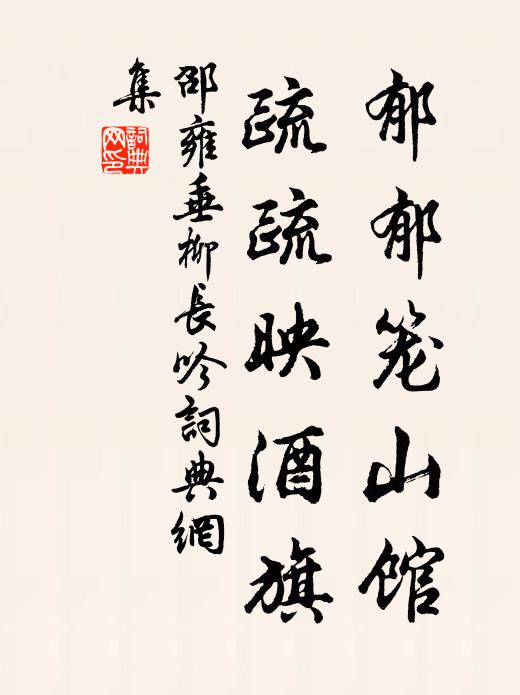 郁郁笼山馆
疏疏映酒旗
邵雍垂柳長吟詞典網
集
詞典網印